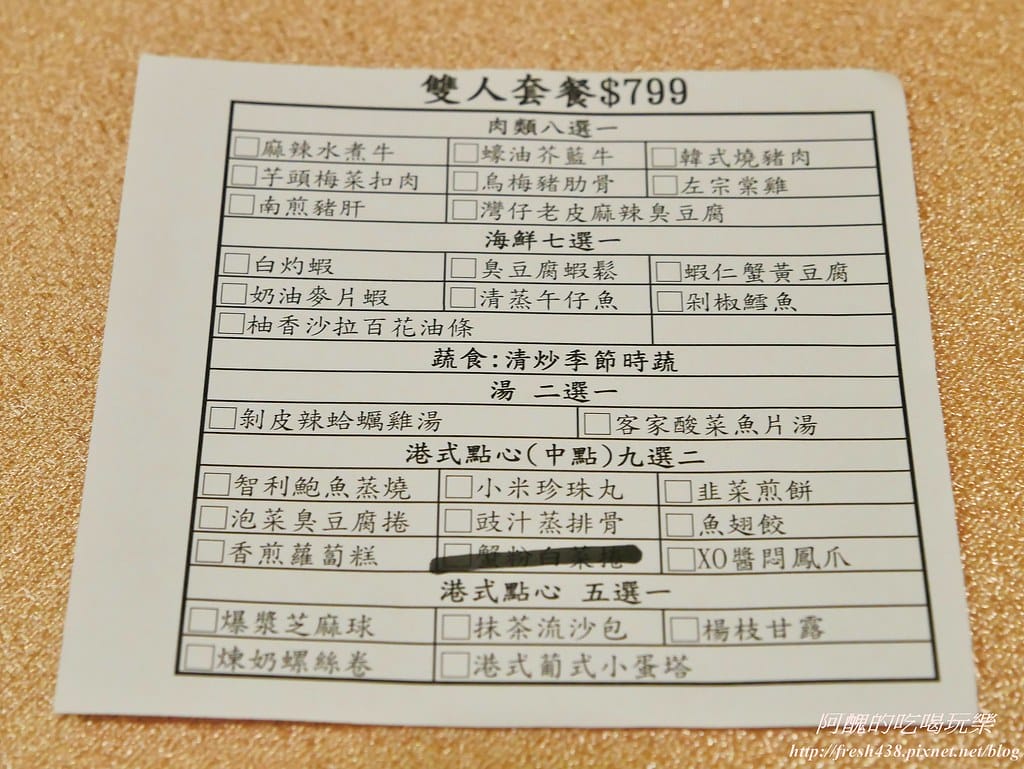 雙人套餐$799
肉類八選一
□麻辣水煮牛 □蠔油芥藍牛 □韓式燒豬肉
□芋頭梅菜扣肉 □烏梅豬肋骨 □左宗棠雞
□南煎豬肝 □灣仔老皮麻辣臭豆腐
海鮮七選一
□白灼蝦 □臭豆腐蝦鬆 □蝦仁蟹黃豆腐
□奶油麥片蝦 □清蒸午仔魚 □剁椒鱈魚
□柚香沙拉百花油條
蔬食:清炒季節時蔬
湯 二選一
□剝皮辣蛤蠣雞湯 □客家酸菜魚片湯
港式點心(中點)九選二
□智利鮑魚蒸燒 □小米珍珠丸 □韭菜煎餅
□泡菜臭豆腐捲 □豉汁蒸排骨 □魚翅餃
□香煎蘿蔔糕 □蟹粉白菜捲 □XO醬悶鳳爪
港式點心 五選一
□爆漿芝麻球 □抹茶流沙包 □楊枝甘露
□煉奶螺絲卷 □港式葡式小蛋塔
阿醜的吃喝玩樂
http://fresh438.pixnet.net/blog